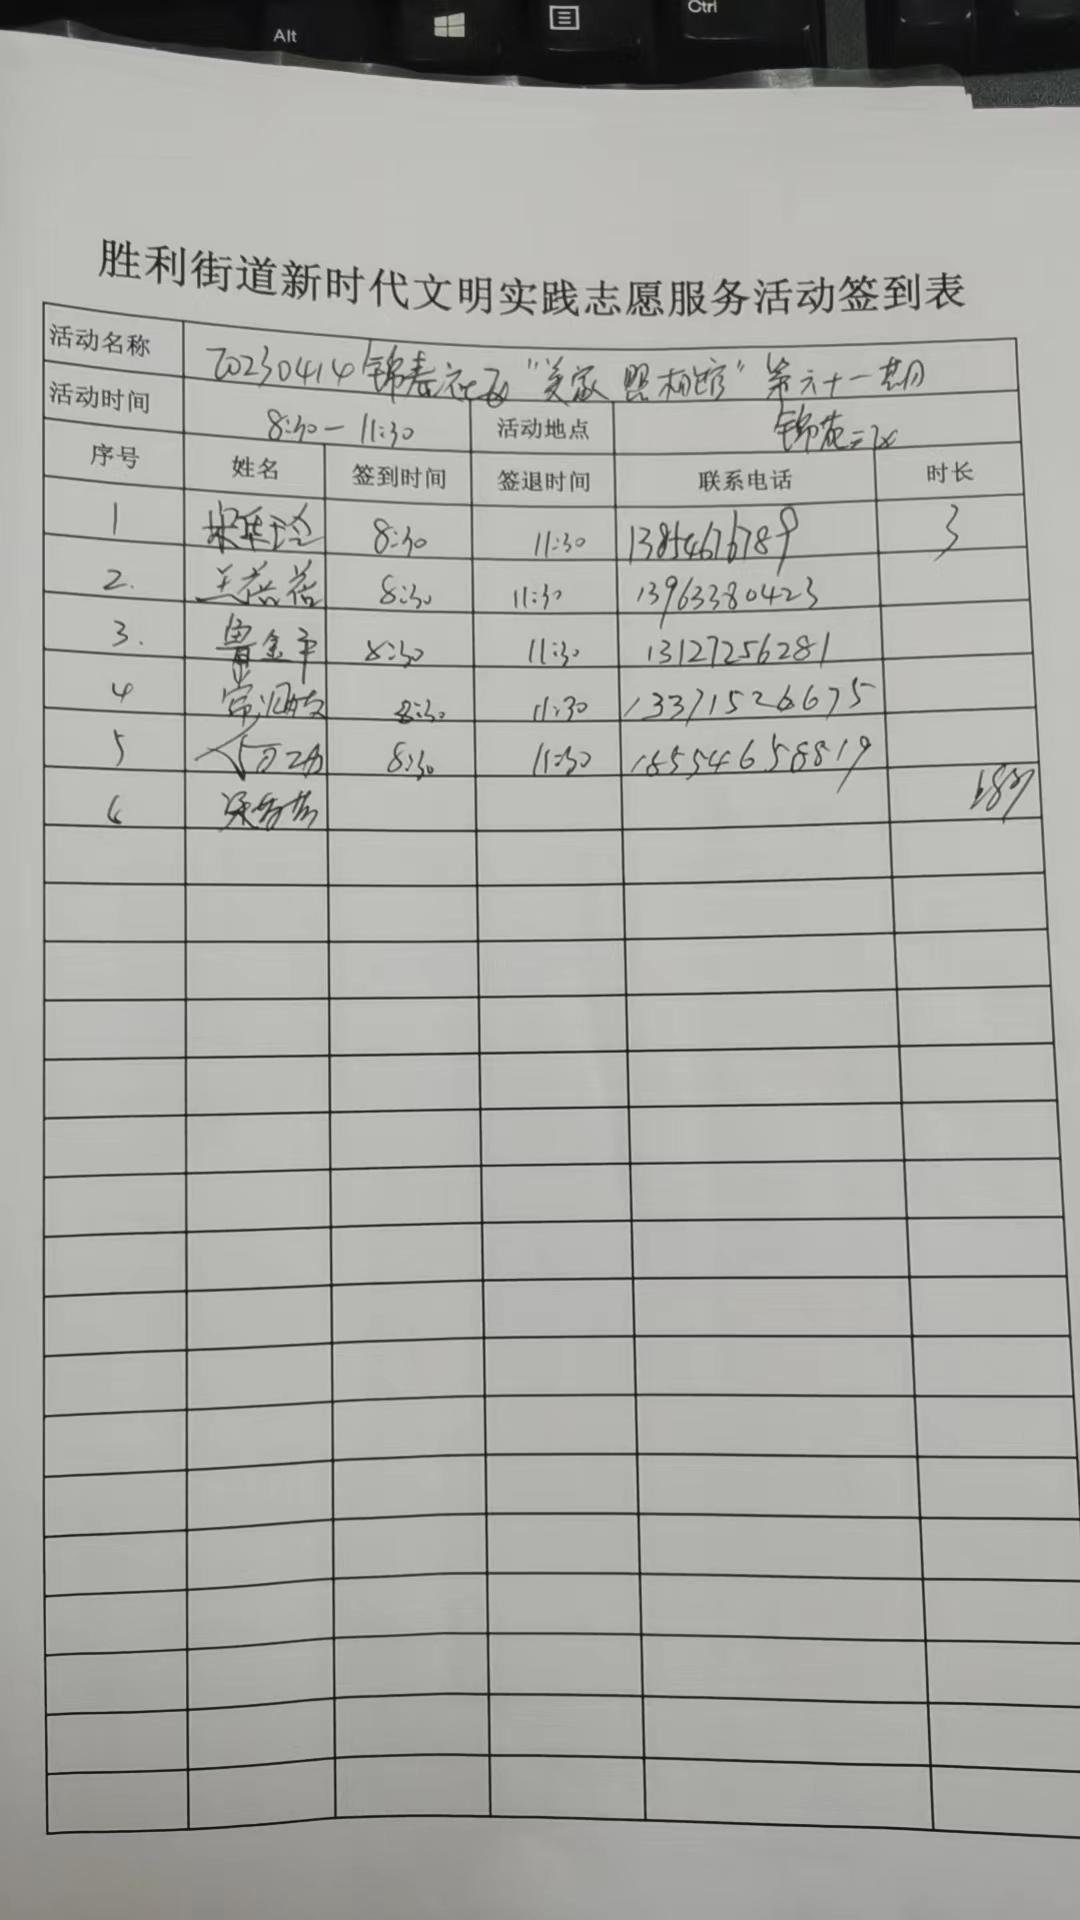 Alt
Ctrl
胜利街道新时代文明实践志愿服务活动签到表
活动名称 20230414锦春社区"美家照相馆"第六十一期
活动时间 8:30-11:30 活动地点 锦苑二区
序号 姓名 签到时间 签退时间 联系电话 时长
1 8:30 11:30 13854676789 3
2. 兰蓓蓓 8:30 11:30 13963380423
3. 鲁金平 8:30 11:30 13127256281
4 8:30 11:30 13371526675
5 8:30 11:30 18554658819
6